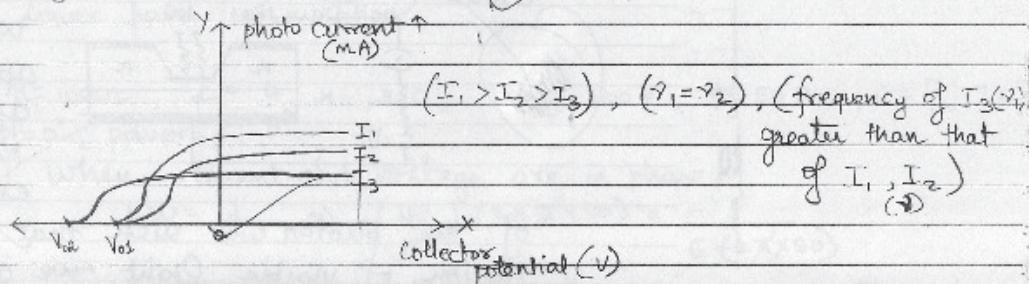 Y photo current ↑
(mA)
(I₁ > I₂ > I₃) , (ν₁ = ν₂) , (frequency of I₃(ν₁)
greater than that
of I₁ , I₂)
(ν)
I₁
I₂
I₃
V₀₂ V₀₁ O → X
Collector
potential (V)